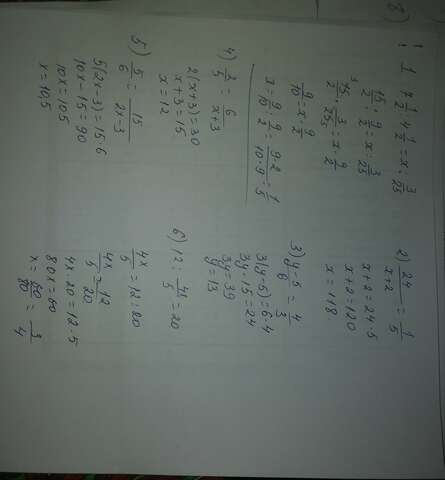 8)
1) 7 1/2 : 4 1/2 = x : 3/25
15/2 : 9/2 = x : 3/25
15/2 · 3/25 = x · 9/2
9/10 = x · 9/2
x = 9/10 : 9/2 = 9·2/10·9 = 1/5
2) 24/x+2 = 1/5
x + 2 = 24 · 5
x + 2 = 120
x = 118
3) y-5/6 = 4/3
3(y-5) = 6·4
3y - 15 = 24
3y = 39
y = 13
4) 2/5 = 6/x+3
2(x+3) = 30
x + 3 = 15
x = 12
5) 5/6 = 15/2x-3
5(2x-3) = 15·6
10x - 15 = 90
10x = 105
x = 10,5
6) 12 : 4x/5 = 20
4x/5 = 12 : 20
4x/5 = 12/20
4x · 20 = 12 · 5
80x = 60
x = 60/80 = 3/4